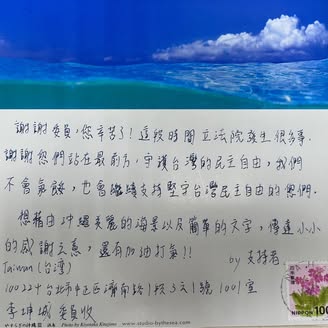 謝謝委員，您辛苦了！這段時間立法院發生很多事．
謝謝您們站在最前方，守護台灣的民主自由，我們
不會氣餒，也會繼續支持堅守台灣民主自由的您們．
想藉由沖繩美麗的海景以及簡單的文字，傳達小小
的感謝之意，還有加油打氣!!
by 支持者
Taiwan (台灣)
100224 台北市中正區濟南路1段3之1號 1001室
李坤城 委員收
Photo by Kiyotaka Kitajima
www.studio-bythesea.com
NIPPON
100